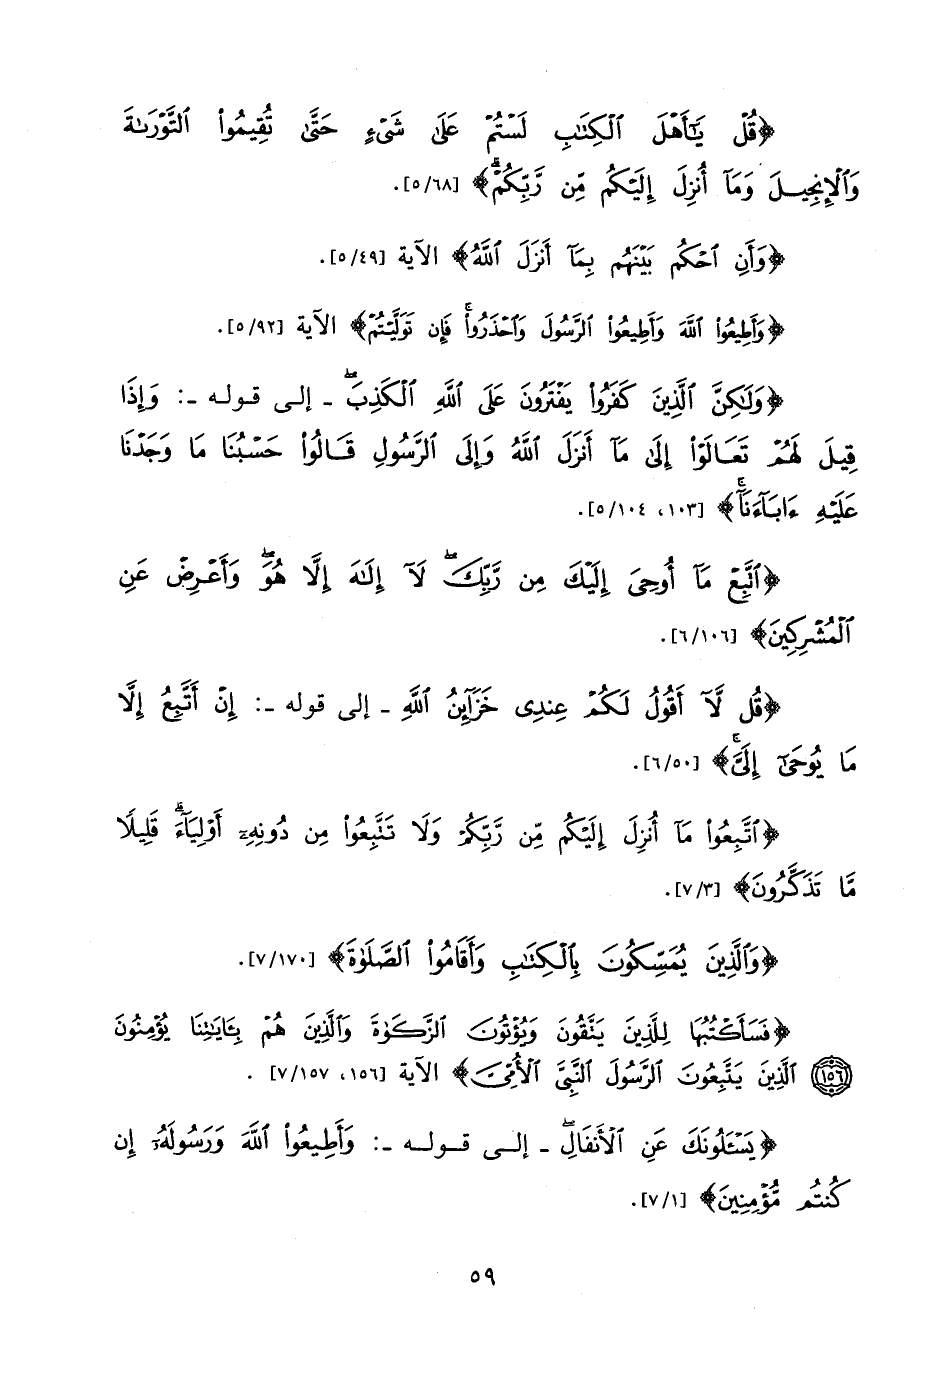 ﴿قُلْ يَٰٓأَهْلَ ٱلْكِتَٰبِ لَسْتُمْ عَلَىٰ شَىْءٍ حَتَّىٰ تُقِيمُوا۟ ٱلتَّوْرَىٰةَ
وَٱلْإِنجِيلَ وَمَآ أُنزِلَ إِلَيْكُم مِّن رَّبِّكُمْ ۗ﴾ [٥/٦٨].
﴿وَأَنِ ٱحْكُم بَيْنَهُم بِمَآ أَنزَلَ ٱللَّهُ﴾ الآية [٥/٤٩].
﴿وَأَطِيعُوا۟ ٱللَّهَ وَأَطِيعُوا۟ ٱلرَّسُولَ وَٱحْذَرُوا۟ ۚ فَإِن تَوَلَّيْتُمْ﴾ الآية [٥/٩٢].
﴿وَلَٰكِنَّ ٱلَّذِينَ كَفَرُوا۟ يَفْتَرُونَ عَلَى ٱللَّهِ ٱلْكَذِبَ ۖ ـ إلى قوله ـ: وَإِذَا
قِيلَ لَهُمْ تَعَالَوْا۟ إِلَىٰ مَآ أَنزَلَ ٱللَّهُ وَإِلَى ٱلرَّسُولِ قَالُوا۟ حَسْبُنَا مَا وَجَدْنَا
عَلَيْهِ ءَابَآءَنَآ ۚ﴾ [١٠٣، ٥/١٠٤].
﴿ٱتَّبِعْ مَآ أُوحِىَ إِلَيْكَ مِن رَّبِّكَ ۖ لَآ إِلَٰهَ إِلَّا هُوَ ۖ وَأَعْرِضْ عَنِ
ٱلْمُشْرِكِينَ﴾ [٦/١٠٦].
﴿قُل لَّآ أَقُولُ لَكُمْ عِندِى خَزَآئِنُ ٱللَّهِ ـ إلى قوله ـ: إِنْ أَتَّبِعُ إِلَّا
مَا يُوحَىٰٓ إِلَىَّ ۚ﴾ [٦/٥٠].
﴿ٱتَّبِعُوا۟ مَآ أُنزِلَ إِلَيْكُم مِّن رَّبِّكُمْ وَلَا تَتَّبِعُوا۟ مِن دُونِهِۦٓ أَوْلِيَآءَ ۗ قَلِيلًا
مَّا تَذَكَّرُونَ﴾ [٧/٣].
﴿وَٱلَّذِينَ يُمَسِّكُونَ بِٱلْكِتَٰبِ وَأَقَامُوا۟ ٱلصَّلَوٰةَ﴾ [٧/١٧٠].
﴿فَسَأَكْتُبُهَا لِلَّذِينَ يَتَّقُونَ وَيُؤْتُونَ ٱلزَّكَوٰةَ وَٱلَّذِينَ هُم بِـَٔايَٰتِنَا يُؤْمِنُونَ
(١٥٦) ٱلَّذِينَ يَتَّبِعُونَ ٱلرَّسُولَ ٱلنَّبِىَّ ٱلْأُمِّىَّ﴾ الآية [١٥٦، ٧/١٥٧] .
﴿يَسْـَٔلُونَكَ عَنِ ٱلْأَنفَالِ ۖ ـ إلى قوله ـ: وَأَطِيعُوا۟ ٱللَّهَ وَرَسُولَهُۥٓ إِن
كُنتُم مُّؤْمِنِينَ﴾ [٧/١].
٥٩